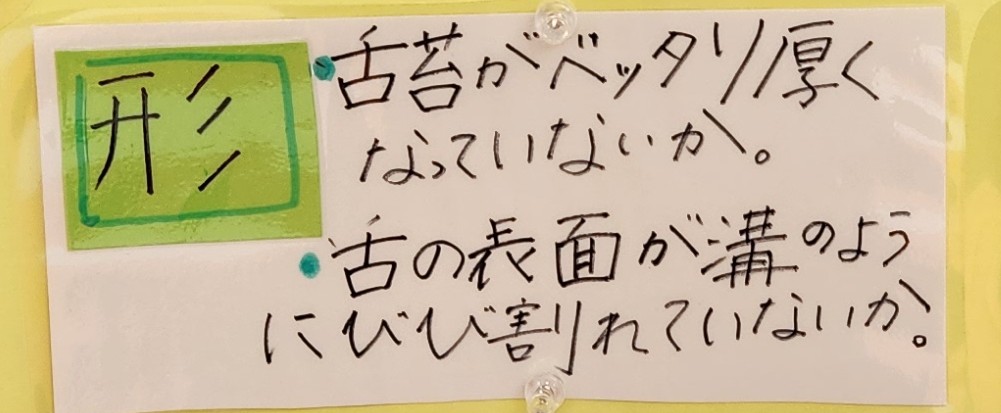 形
・舌苔がベッタリ厚く
なっていないか。
・舌の表面が溝のよう
にひび割れていないか。